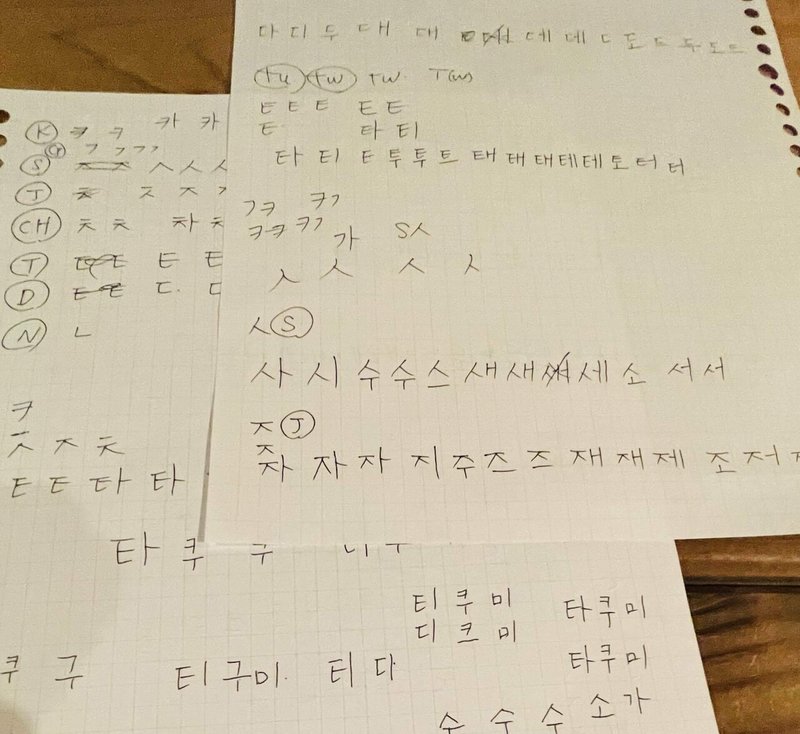 다 디 두 대 대 데 데 ㄷ 도 드 두 도 드
tu tw tw T(w)
ㅌ ㅌ ㅌ ㅌ ㅌ
ㅌ 타 티
타 티 ㅌ 투 투 트 태 태 태 테 테 토 터 터
ㄱㅋ ㅋㄱ
ㅋㅋ ㅋㄱ 가 S ㅅ
ㅅ ㅅ ㅅ ㅅ
ㅅ S
사 시 수 수 스 새 새 세 소 서 서
ㅈ J
ㅈ
자 자 자 지 주 즈 즈 재 재 제 조 저
K ㅋ ㅋ 카 카
G ㄱ ㄱ ㄱㄱ
S ㅅ ㅅ ㅅ
J ㅊ ㅈ ㅈ
CH ㅊ ㅊ 차
T ㅌ ㅌ
D ㄷ ㄷ
N ㄴ
ㅋ
ㅊ ㅈ ㅊ
ㅌ ㅌ 타 타
타 쿠 구
티 쿠 미 타쿠미
디 크 미
타쿠미
쿠 구 티구미. 티 다
수 수 수 소가